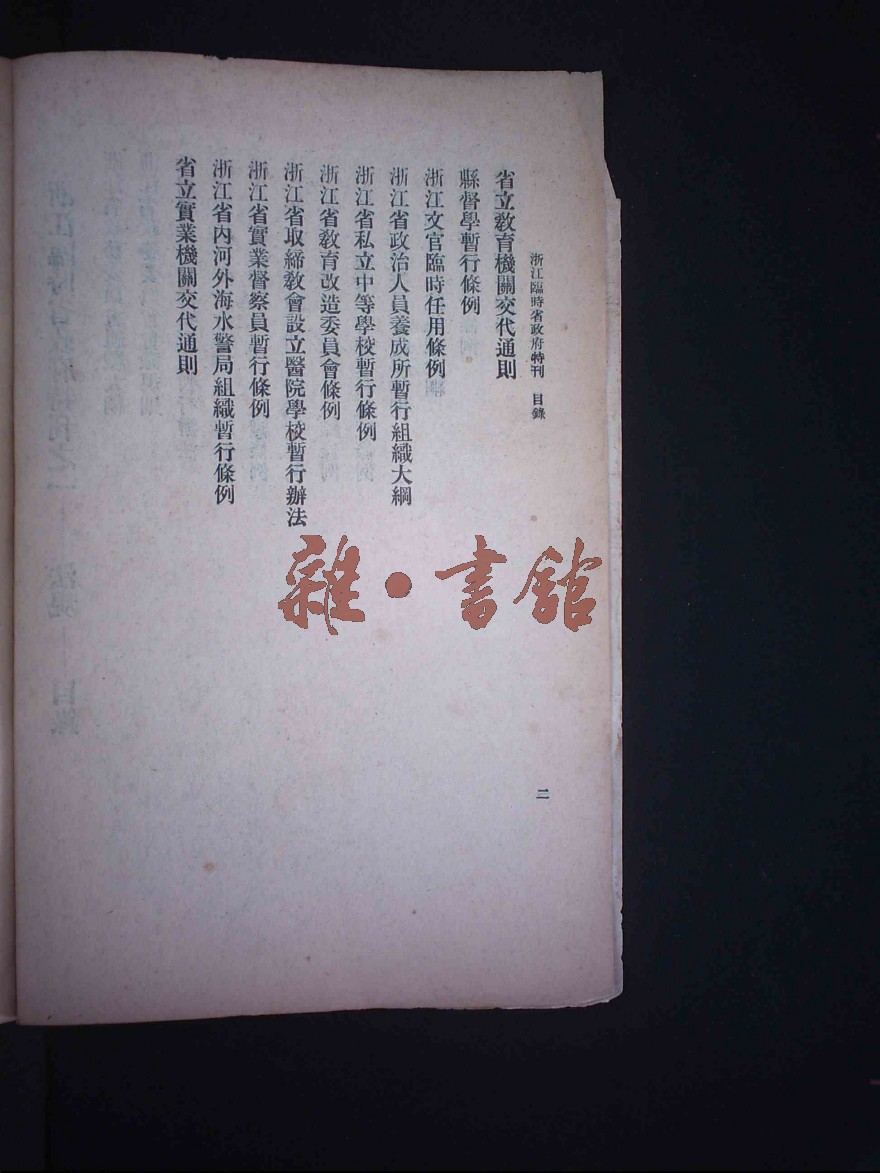 浙江臨時省政府特刊 目錄
二
省立教育機關交代通則
縣督學暫行條例
浙江文官臨時任用條例
浙江省政治人員養成所暫行組織大綱
浙江省私立中等學校暫行條例
浙江省教育改造委員會條例
浙江省取締教會設立醫院學校暫行辦法
浙江省實業督察員暫行條例
浙江省內河外海水警局組織暫行條例
省立實業機關交代通則
雜·書館